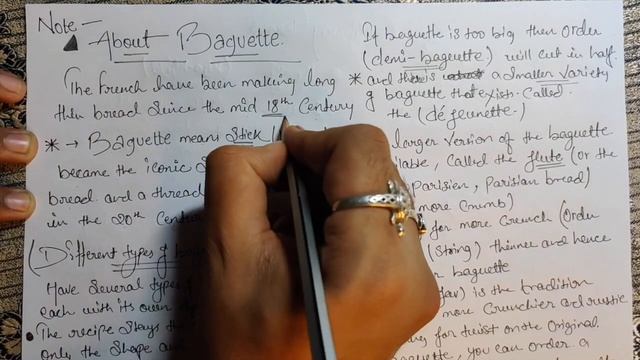 Note -
About Baguette.
The French have been making long
thin bread Since the mid 18th Century
* → Baguette means Stick
became the iconic
bread and a thread
in the 20th Cent
(Different types of
Have several types
each with its own
The recipe stays th
only the shape a
If baguette is too big then order
(demi-baguette) will cut in half.
* and there is a smaller variety
of baguette that exists called
the (déjeunette.)
larger version of the baguette
lable, called the flute (or the
parisien, parisian bread)
more crumb)
for more crunch (order
(string) thinner and hence
baguette
is the tradition
more crunchier and rustic
for twist on the original.
baguette, you can order a